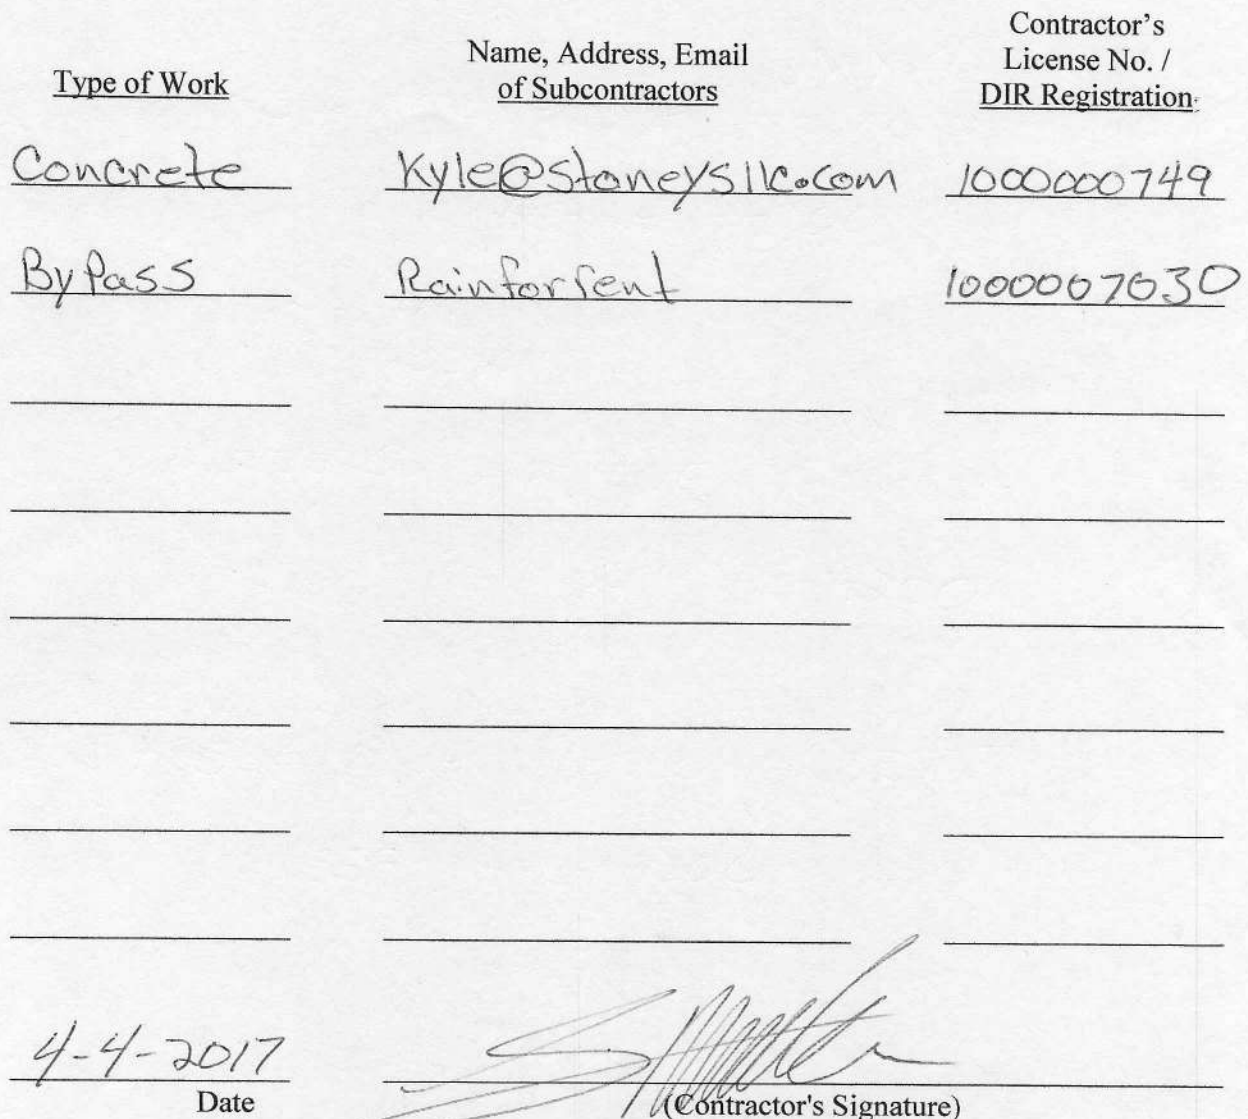 Type of Work
Name, Address, Email
of Subcontractors
Contractor's
License No. /
DIR Registration
Concrete Kyle@stoneysllc.com 1000000749
ByPass Rainforrent 1000007030
4-4-2017
Date (Contractor's Signature)